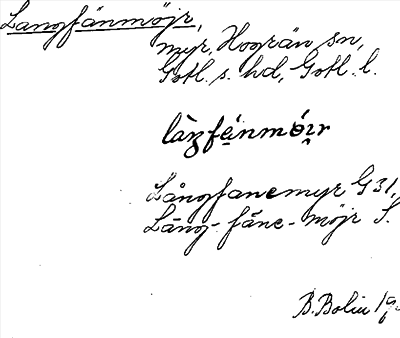 Langfänmöjr,
myr, Hogrän sn,
Gotl. s. hd, Gotl. l.
làŋfę́nmǿi̯r
Långfanemyr G 31,
Läng-fäne-möjr S.
B. Bolin